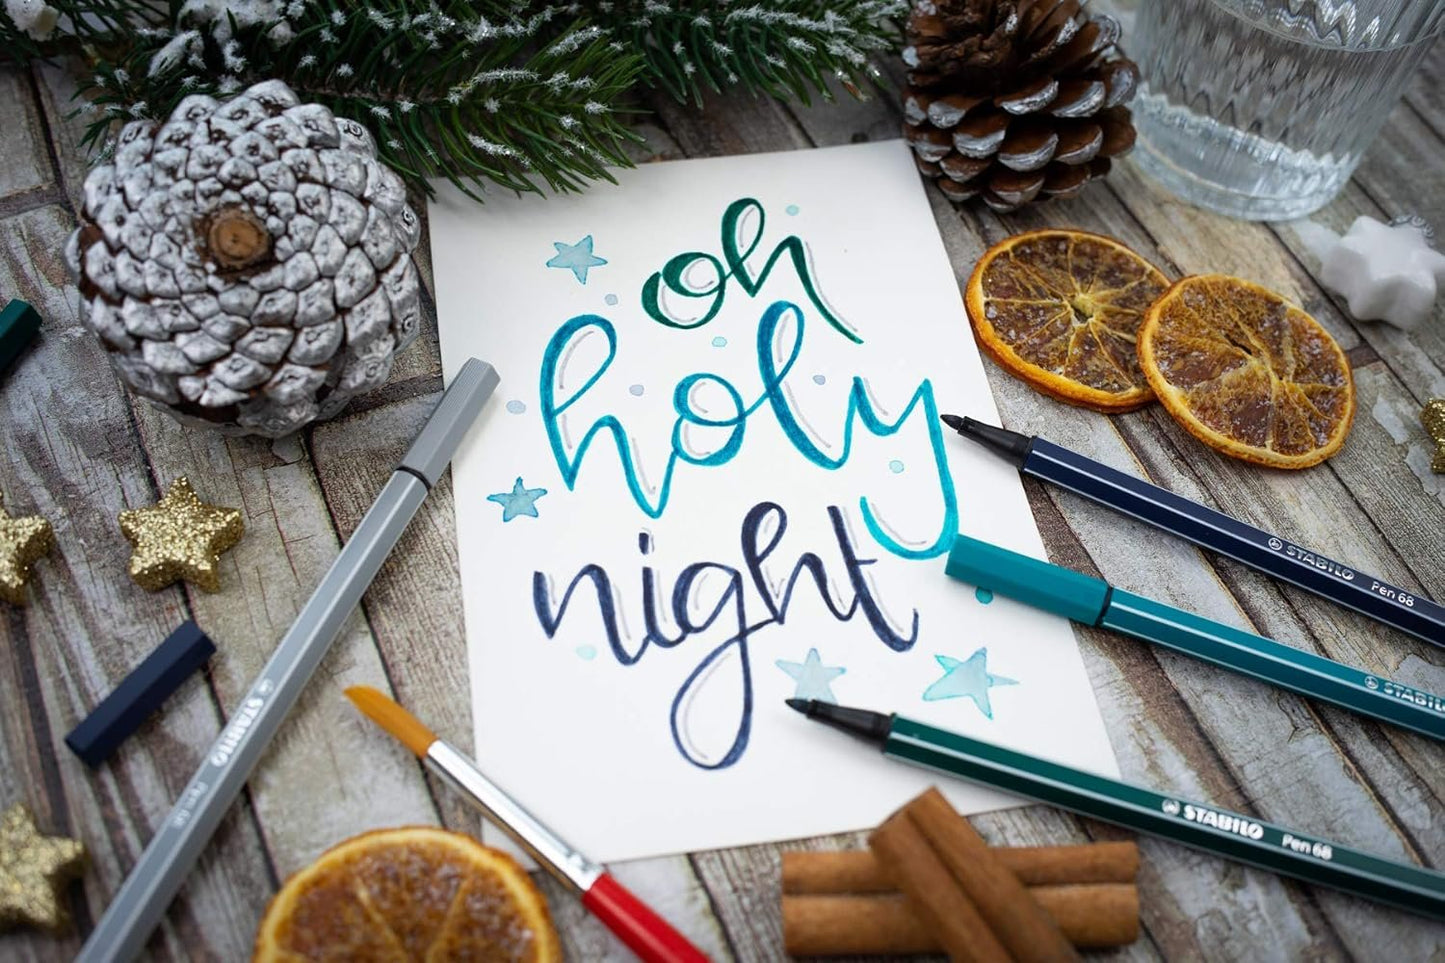 oh
holy
night
STABILO Pen 68
STABILO
STABILO Pen 68
STABILO Pen 68